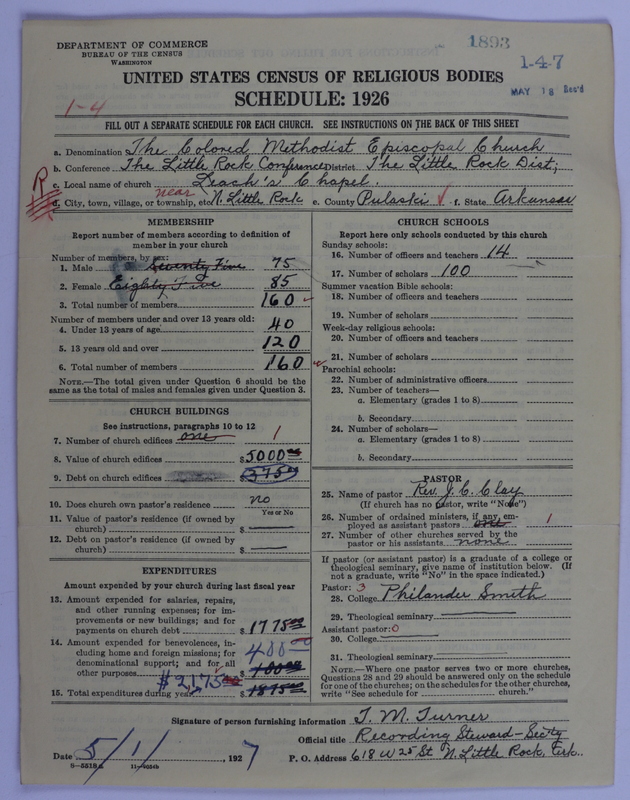 DEPARTMENT OF COMMERCE
BUREAU OF THE CENSUS
WASHINGTON
1893
1-4-7
MAY 18 Rec'd
UNITED STATES CENSUS OF RELIGIOUS BODIES
SCHEDULE: 1926
1-4
FILL OUT A SEPARATE SCHEDULE FOR EACH CHURCH. SEE INSTRUCTIONS ON THE BACK OF THIS SHEET
a. Denomination The Colored Methodist Episcopal Church
b. Conference The Little Rock Conference District The Little Rock Dist;
c. Local name of church Leach's Chapel.
R
d. City, town, village, or township, etc. near N. Little Rock e. County Pulaski f. State Arkansas
MEMBERSHIP
Report number of members according to definition of
member in your church
Number of members, by sex:
1. Male Seventy Five 75
2. Female Eighty Five 85
3. Total number of members 160
Number of members under and over 13 years old:
4. Under 13 years of age 40
5. 13 years old and over 120
6. Total number of members 160
NOTE.—The total given under Question 6 should be the
same as the total of males and females given under Question 3.
CHURCH BUILDINGS
See instructions, paragraphs 10 to 12
7. Number of church edifices one 1
8. Value of church edifices $5000 00
9. Debt on church edifices 375 00
10. Does church own pastor's residence no
Yes or No
11. Value of pastor's residence (if owned by
church) $
12. Debt on pastor's residence (if owned by
church) $
EXPENDITURES
Amount expended by your church during last fiscal year
13. Amount expended for salaries, repairs,
and other running expenses; for im-
provements or new buildings; and for
payments on church debt $1775 00
14. Amount expended for benevolences, in-
cluding home and foreign missions; for
denominational support; and for all
other purposes $ 100 00 400 00
$2,175 00
15. Total expenditures during year $ 1875 00
CHURCH SCHOOLS
Report here only schools conducted by this church
Sunday schools:
16. Number of officers and teachers 14
17. Number of scholars 100
Summer vacation Bible schools:
18. Number of officers and teachers
19. Number of scholars
Week-day religious schools:
20. Number of officers and teachers
21. Number of scholars
Parochial schools:
22. Number of administrative officers
23. Number of teachers—
a. Elementary (grades 1 to 8)
b. Secondary
24. Number of scholars—
a. Elementary (grades 1 to 8)
b. Secondary
PASTOR
25. Name of pastor Rev. J. C. Clay
(If church has no pastor, write "None")
26. Number of ordained ministers, if any, em-
ployed as assistant pastors one 1
27. Number of other churches served by the
pastor or his assistants none
If pastor (or assistant pastor) is a graduate of a college or
theological seminary, give name of institution below. (If
not a graduate, write "No" in the space indicated.)
Pastor: 3
28. College Philander Smith
29. Theological seminary
Assistant pastor: 0
30. College
31. Theological seminary
NOTE.—Where one pastor serves two or more churches,
Questions 28 and 29 should be answered only on the schedule
for one of the churches; on the schedules for the other churches,
write "See schedule for church."
Signature of person furnishing information T. M. Turner
Official title Recording Steward-Sec'ty
Date 5/1/, 1927 P. O. Address 618 W 25 St N. Little Rock, Ark.
8-5518a 11-9054b